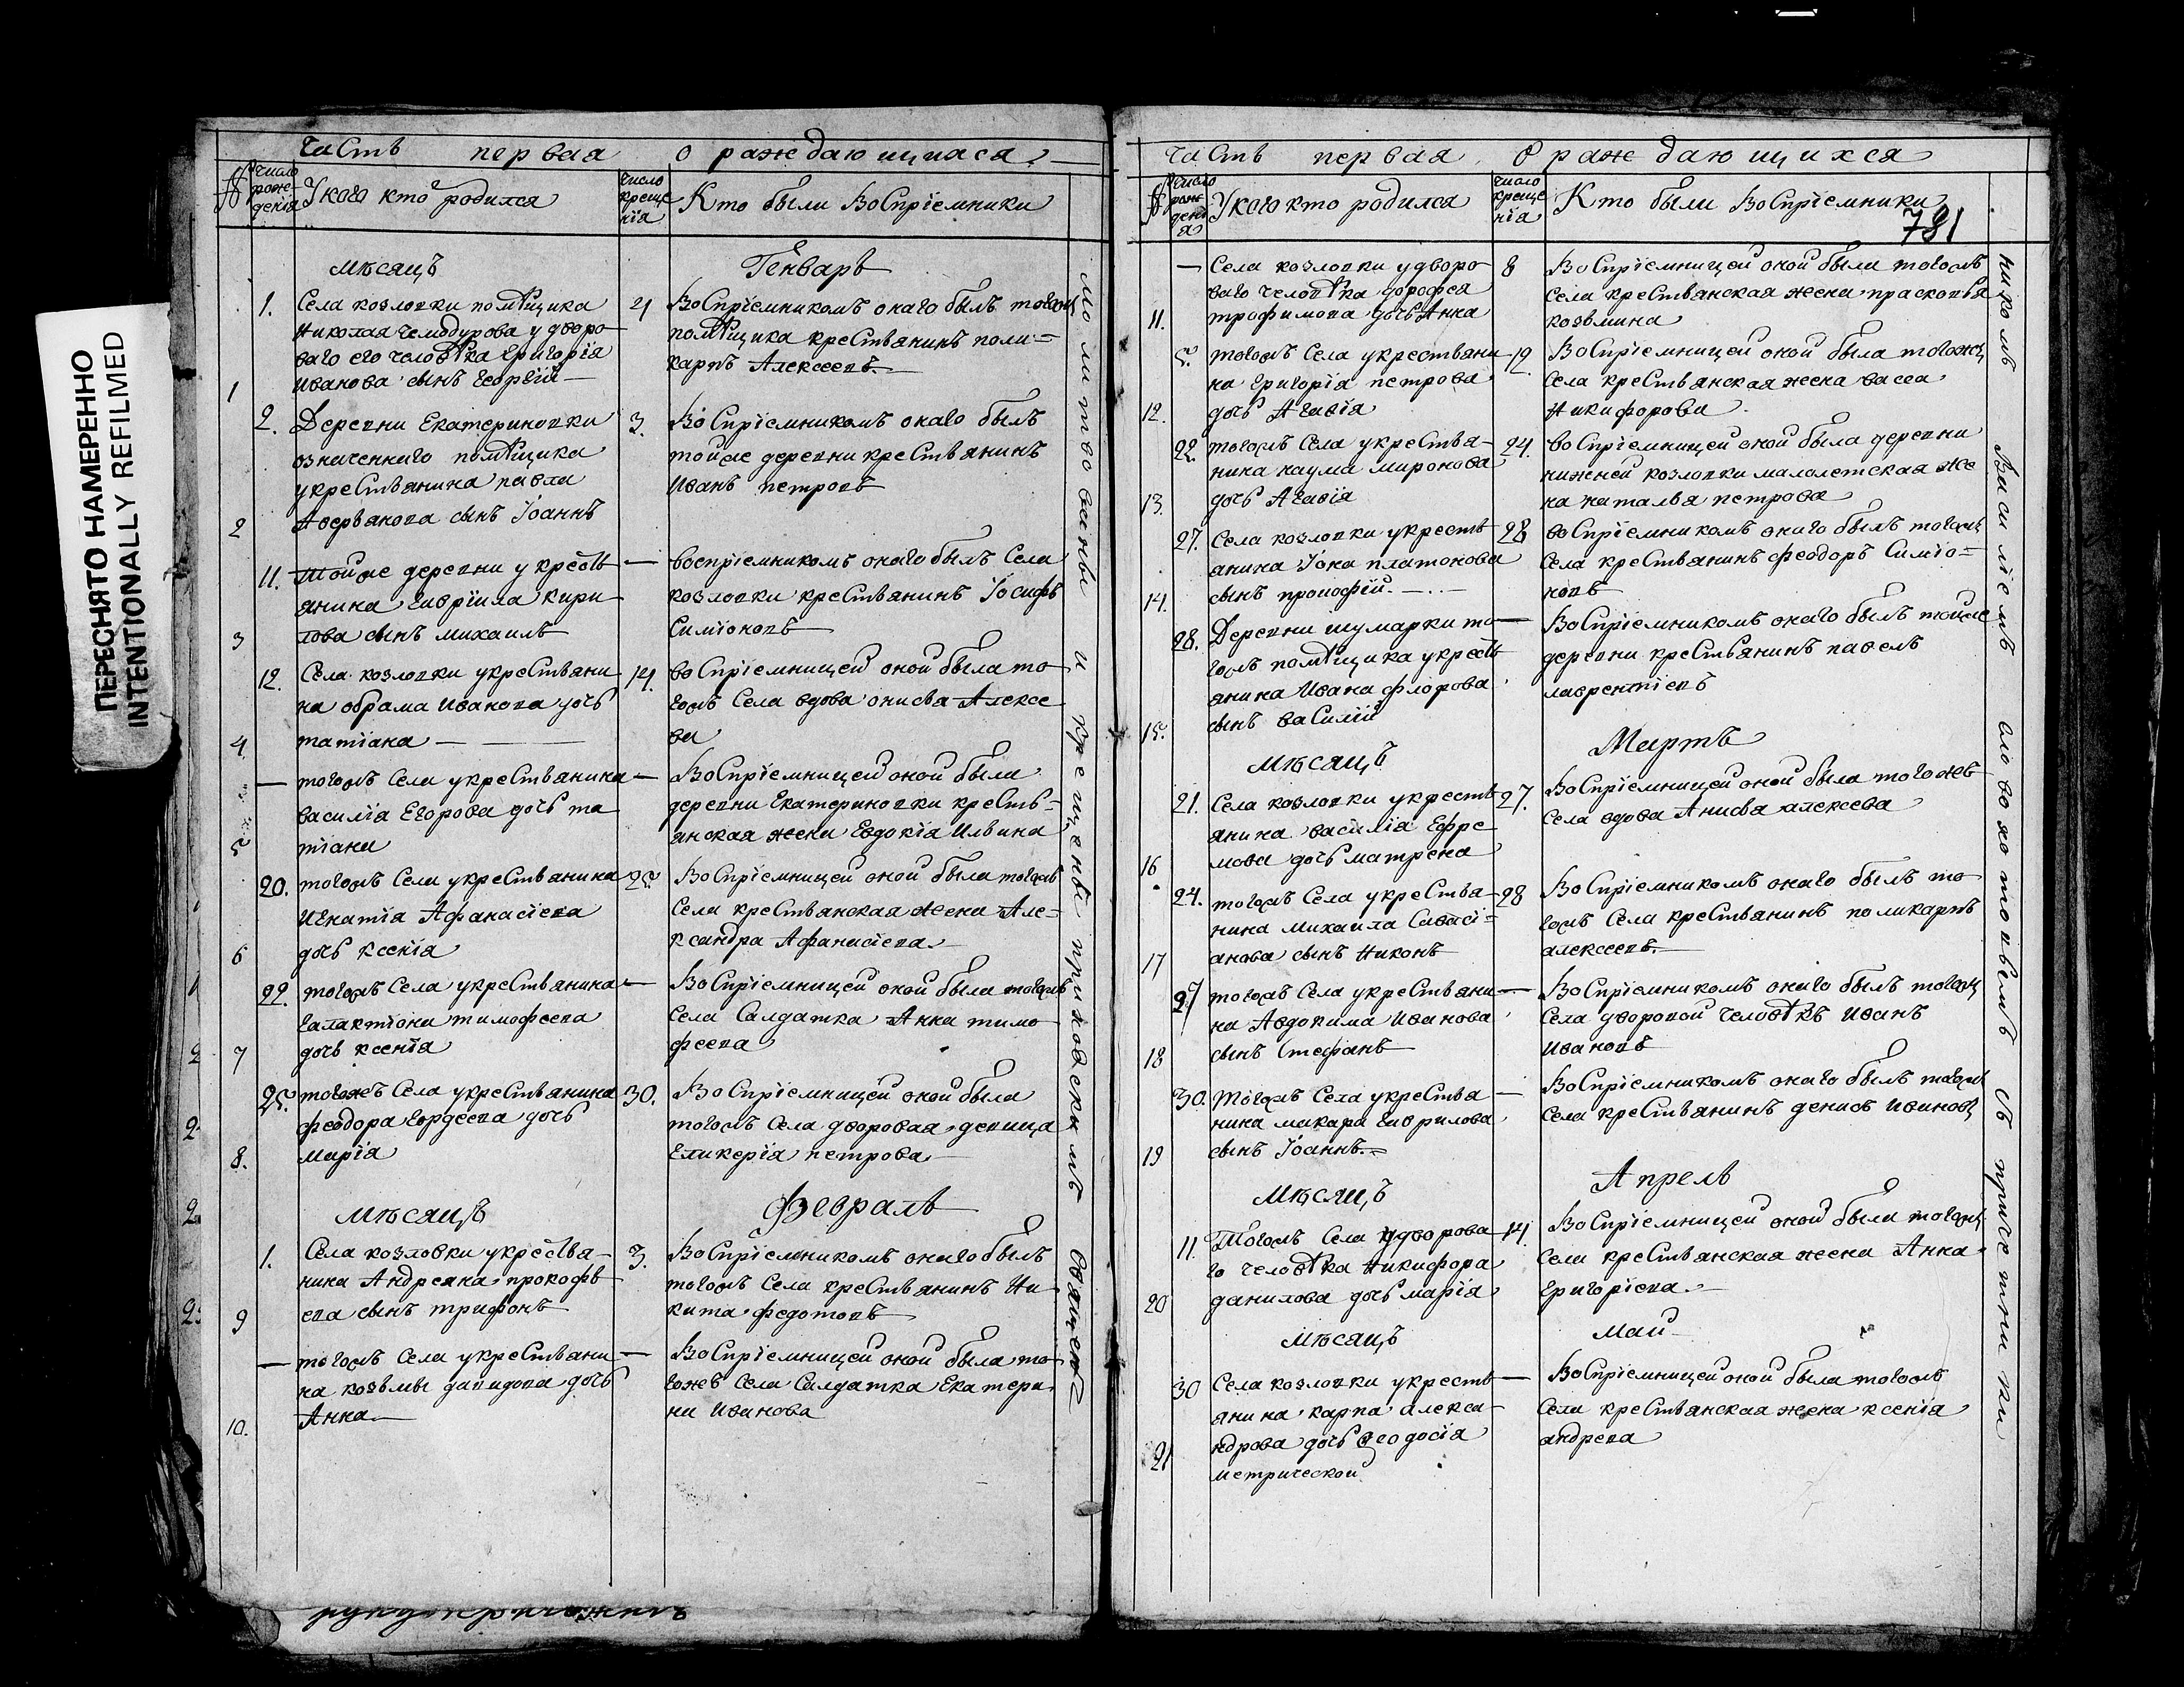 ПЕРЕСНЯТО НАМЕРЕННО
INTENTIONALLY REFILMED
Часть первая о раждающихся
№
число рож-
денія
У кого кто родился
число
креще
нія
Кто были Воспріемники
мѣсяцъ Генварь
1. Села козловки помѣщика
Николая Чемодурова у дворо
ваго его человѣка Григорія
1 Иванова сынъ Георгій
4 Воспріемникомъ онаго былъ тогожъ
помѣщика крестьянинъ поли=
карпъ Алексеевъ.
2. Деревни Екатериновки
означеннаго помѣщика
у крестьянина павла
2 сынъ Іоаннъ
3. Воспріемникомъ онаго былъ
тойже деревни крестьянинъ
Иванъ петровъ
11. Тойже деревни у кресть
янина Гавріила кири
3 лова сынъ михаилъ
— воспріемникомъ онаго былъ Села
козловки крестьянинъ Іосифъ
Симіоновъ
12. Села козловки у крестьяни
на абрама Иванова дочь
4 татіана
14. воспріемницей оной была то
гожъ Села вдова онисья Алексе
ва
— тогожъ Села у крестьянина
василія Егорова дочь та
5 тіана
— Воспріемницей оной была
деревни Екатериновки кресть=
янская жена Евдокія Ильина
20. тогожъ Села у крестьянина
Игнатія Афанасіева
6 дочь ксенія
25 Воспріемницей оной была тогожъ
Села крестьянская жена Але=
ксандра Афанасіева
22. тогожъ Села у крестьянина
Галактіона тимофеева
7 дочь ксенія
— Воспріемницей оной была тогожъ
Села Салдатка Анна тимо
феева
25. тогожъ Села у крестьянина
феодора Гордеева дочь
8. Марія
30. Воспріемницей оной была
тогожъ Села дворовая девица
Гликерія петрова
мѣсяцъ Февраль
1. Села козловки у крестья-
нина Андреяна прокофь
9 ева сынъ трифонъ
3. Воспріемникомъ онаго былъ
тогожъ Села крестьянинъ Ни
кита федотовъ
— тогожъ Села у крестьяни
на козьмы давидова дочь
10. Анна
— Воспріемницей оной была то
гожъ Села Салдатка Екатери
на Иванова
молитвовалъ и крещенъ приходскимъ Священ
Часть первая О раждающихся
№
число
рож
дені
я
У кого кто родился
число
креще
нія
Кто были Воспріемники
781
— Села козловки у дворо
ваго человѣка дорофея
11. трофимова дочь Анна
8 Воспріемницей оной была тогожъ
Села крестьянская жена прасковья
козьмина
5 тогожъ Села у крестьяни
на Григорія петрова
12. дочь Агавія
12. Воспріемницей оной была тогожъ
Села крестьянская жена васса
Никифорова
22. тогожъ Села у крестья-
нина наума миронова
13. дочь Агавія
24. воспріемницей оной была деревни
нижней козловки малолетская же
на наталья петрова
27. Села козловки у кресть
янина Іона платонова
14. сынъ прокофій.
28 воспріемникомъ онаго былъ тогожъ
Села крестьянинъ феодоръ Симіо=
новъ
28. Деревни шумарки то
гожъ помѣщика у кресть
янина Ивана флорова
15. сынъ василій
— Воспріемникомъ онаго былъ тойже
деревни крестьянинъ павелъ
лаврентіевъ
мѣсяцъ Мартъ
21. Села козловки у кресть
янина василія Ефре
16 мова дочь матрена
27. Воспріемницей оной была тогожъ
Села вдова Анисья алексева
24. тогожъ Села у крестья-
нина михаила Саваті=
17 анова сынъ Никонъ
28 Воспріемникомъ онаго былъ то
гожъ Села крестьянинъ поликарпъ
алексеевъ.
27 тогожъ Села у крестьяни
на Авдокима Иванова
18 сынъ Стефанъ
— Воспріемникомъ онаго былъ тогожъ
Села дворовой человѣкъ Иванъ
Ивановъ
30. Тогожъ Села у крестья
нина макара Гаврилова
19 сынъ Іоаннъ.
— Воспріемникомъ онаго былъ тогожъ
Села крестьянинъ денисъ Ивановъ
мѣсяцъ Апрель
11. Тогожъ Села у дворова
го человѣка Никифора
20 данилова дочь марія
14. Воспріемницей оной была тогожъ
Села крестьянская жена Анна
Григоріева
мѣсяцъ май
30 Села козловки у кресть
янина карпа алекса-
ндрова дочь Феодосія
21 метрической
— Воспріемницей оной была тогожъ
Села крестьянская жена ксенія
андрева
никомъ Василіемъ съ причетники